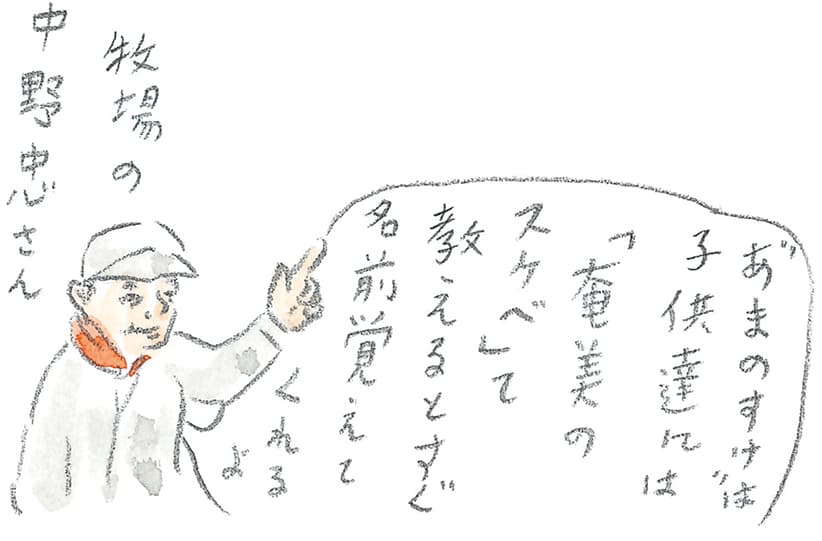 "あまのすけ"は
子供達には
「奄美の
スケベ」て
教えるとすぐ
名前覚えて
くれる
よ
牧場の
中野忠さん